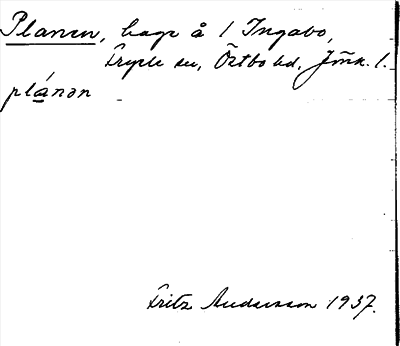 Planen, hage å 1 Ingabo,
Fryele sn, Östbo hd, Jönk. l.
plánən
Fritz Andersson 1937.